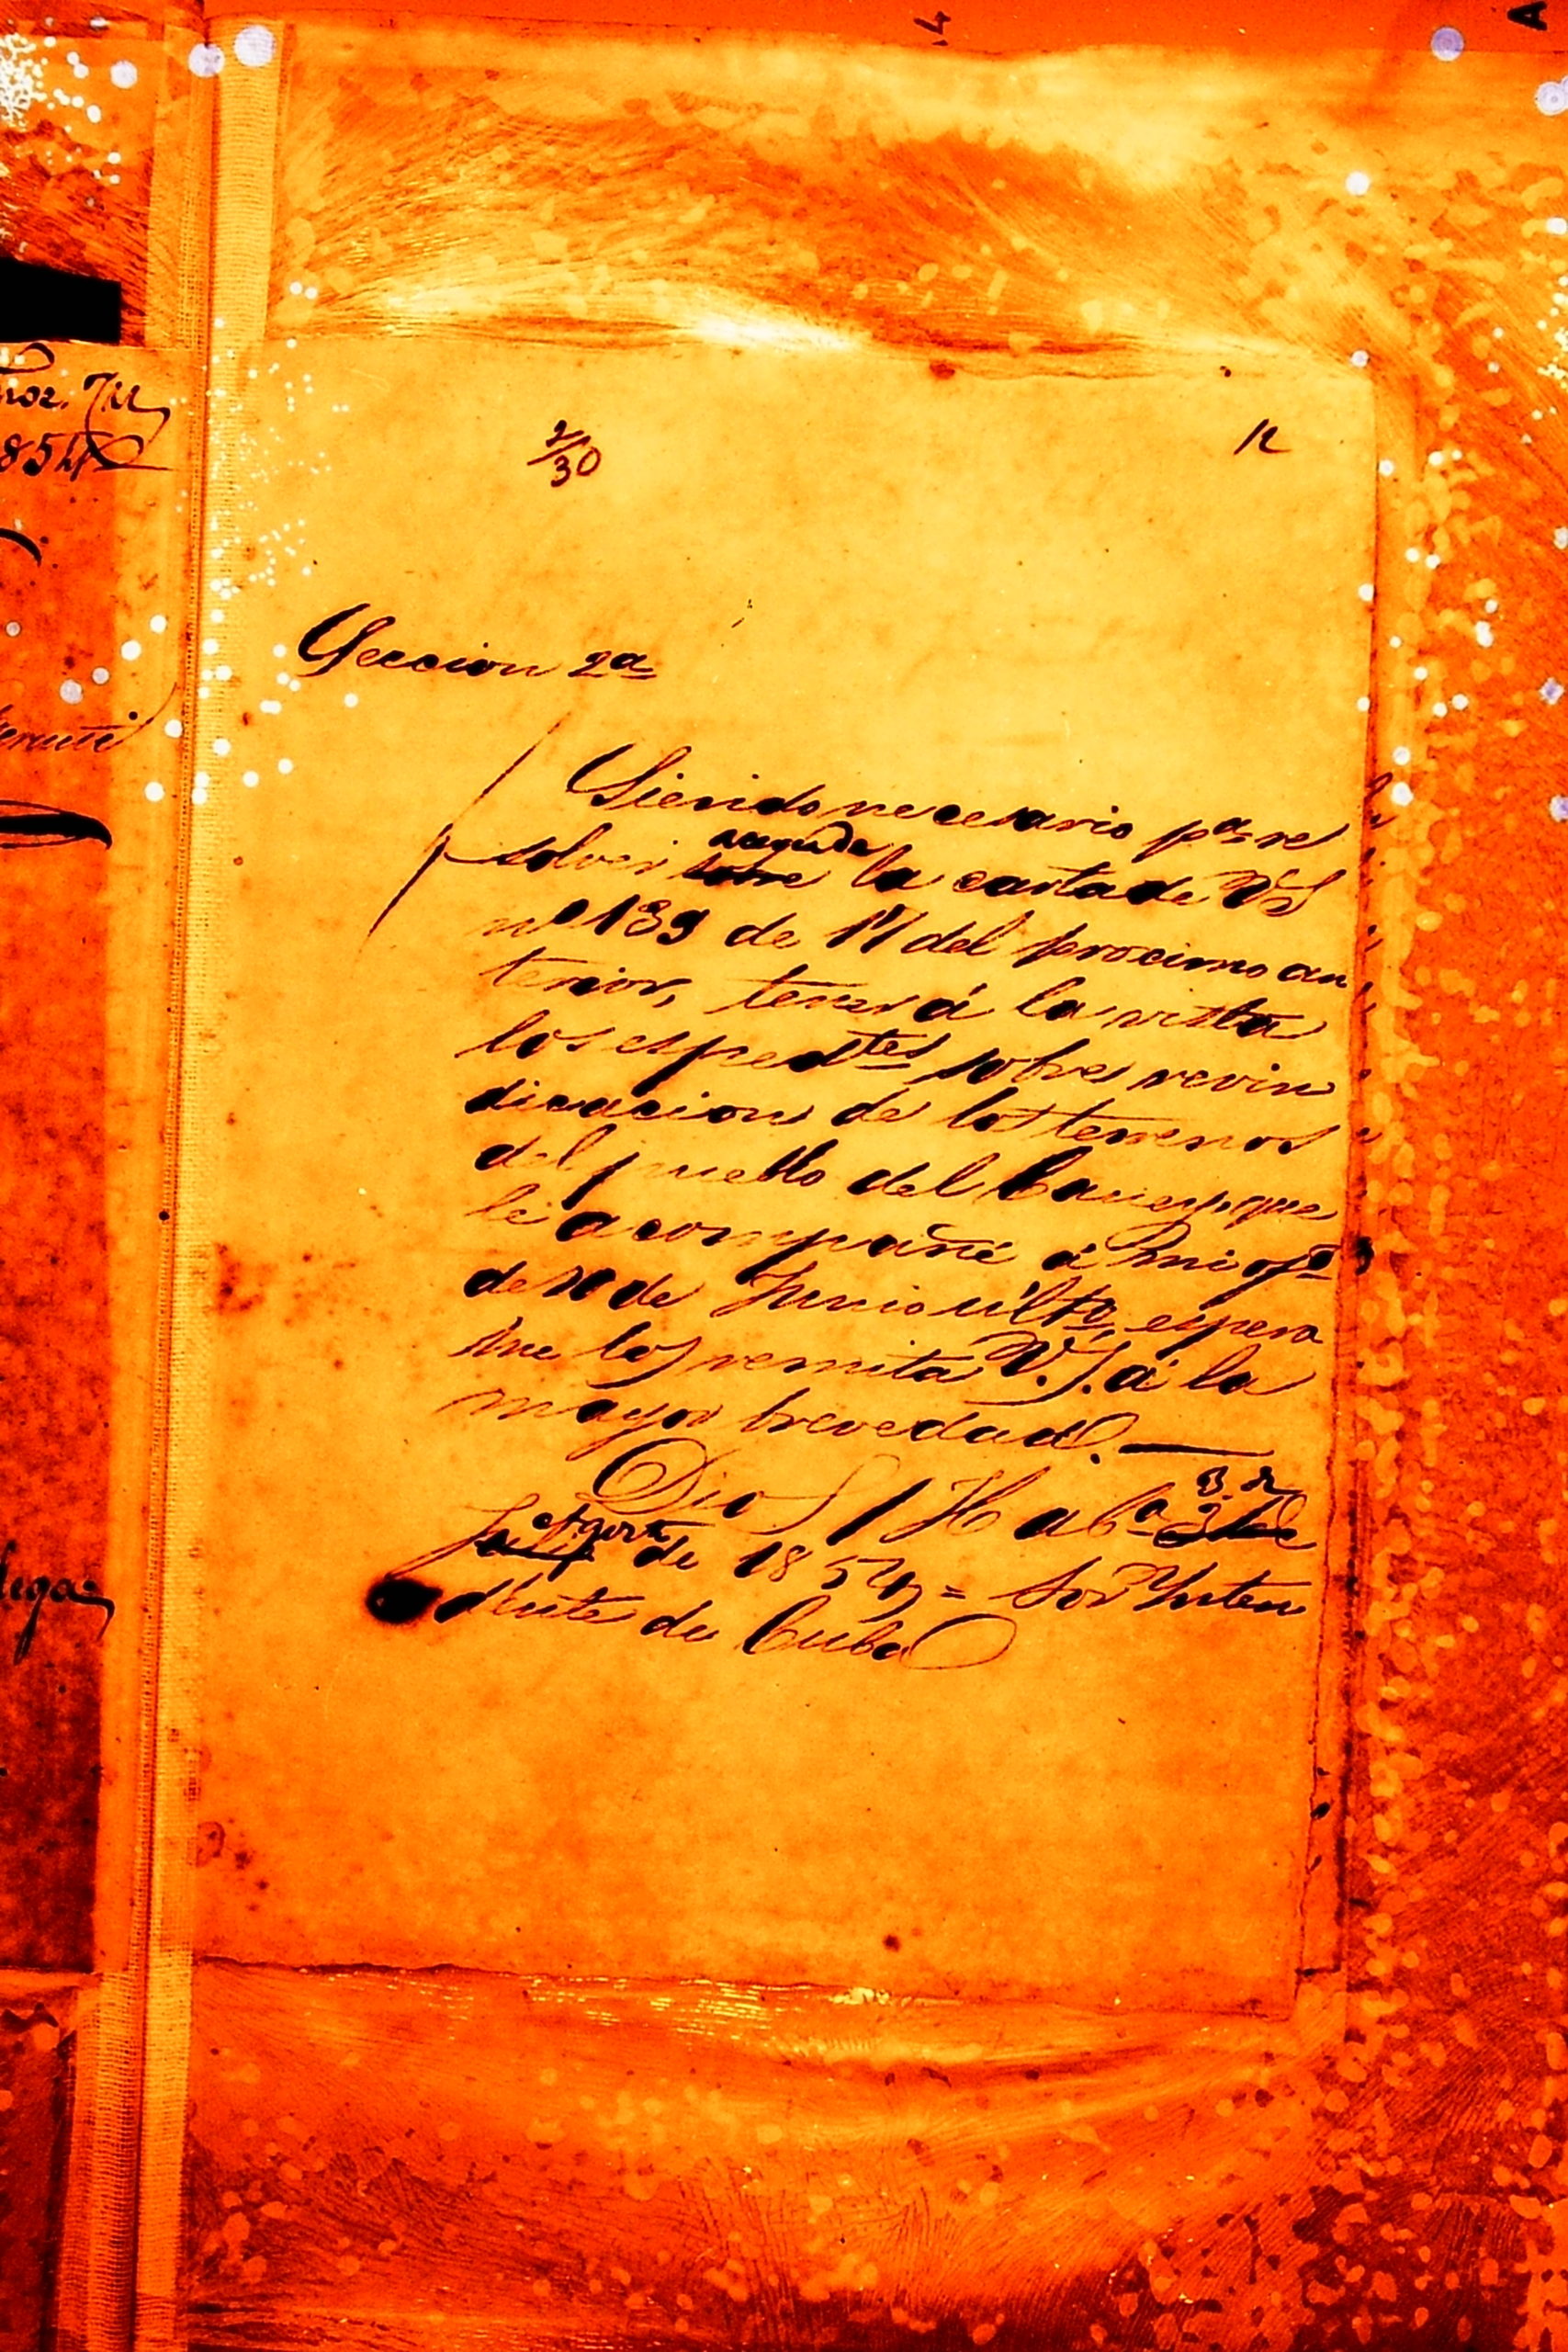 4
A
2/30
12
Seccion 2ª
Siendo necesario pª re
solver acerca de la carta de VS
nº 139 de 17 del procsimo an
terior, tener á la vista
los espedtes sobre revin
dicacion de los terrenos
del pueblo del Caney, que
le acompañé á mi ofº
de de Junio últº, espero
me los remita V.S. á la
mayor brevedad.
Dios / Habª 3 de
Agosto de 1854 = Sor Inten
dente de Cuba